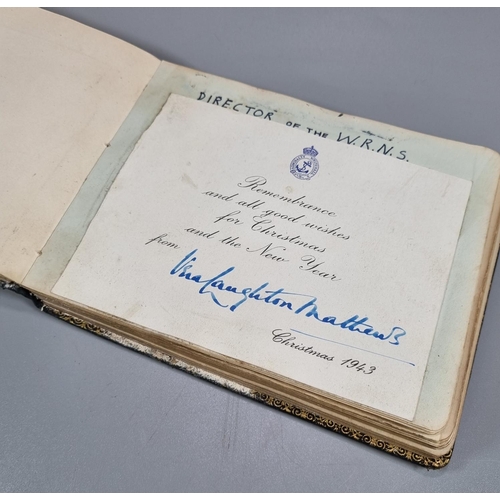 DIRECTOR OF THE W.R.N.S.
Remembrance
and all good wishes
for Christmas
and the New Year
from
Vera Laughton Mathews
Christmas 1943